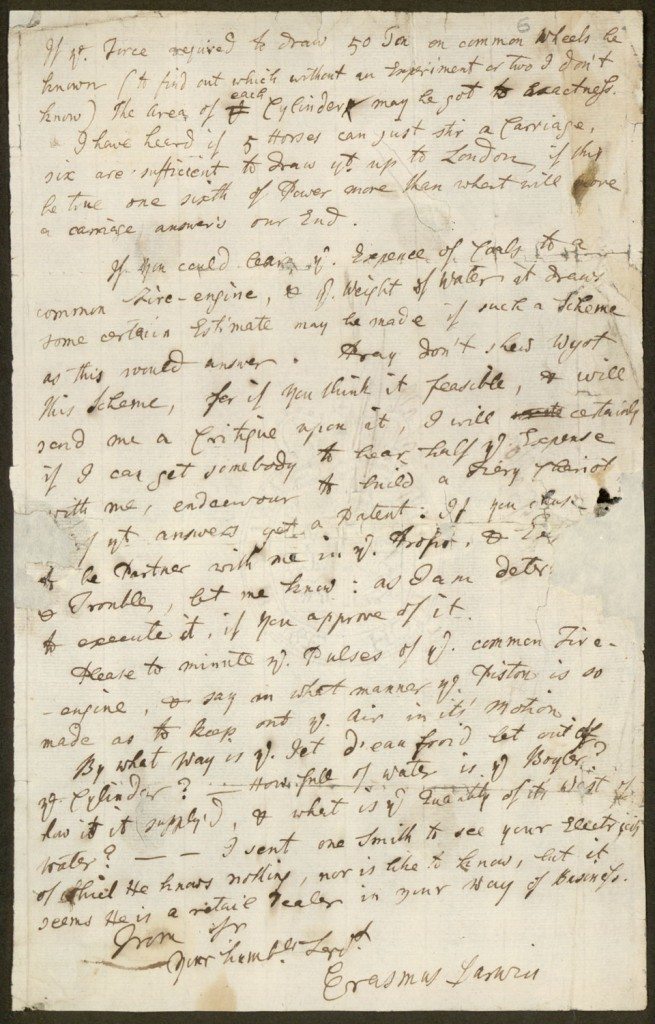 5
If yͤ. Force required to draw 50 Ton on common Wheels be
known (to find out which without an Experiment or two I don't
know) The area of each Cylinder may be got to Exactness.
I have heard if 5 Horses can just stir a Carriage,
six are sufficient to draw yͭ. up to London, if this
be true one sixth of Power more than what will move
a carriage answers our End.
If you could learn yͤ. Expence of Coals to a
common Fire-engine, & yͤ. Weight of Water it draws
some certain Estimate may be made if such a Scheme
as this would answer. Pray don't shew Wyot
this Scheme, for if you think it feasible, & will
send me a Critique upon it, I will certainly
if I can get somebody to bear half yͤ Expense
with me, endeavour to build a Fiery Chariot
& if yͭ. answers get a Patent: If you chuse
to be Partner with me in yͤ. Profit, &
& Trouble, let me know: as I am deter
to execute it, if you approve of it.
Please to minute yͤ. Pulses of yͤ. common Fire-
-engine, & say in what manner yͤ. Piston is so
made as to keep out yͤ. Air in its' Motion.
By what Way is yͤ. Jet d'eau froid let out of
yͤ. Cylinder? — How full of water is yͤ Boyler?
how is it supply'd, & what is yͤ Quantity of its Wast of
Water? — — I sent one Smith to see your Electricity
of which He knows nothing, nor is like to know, but it
seems He is a retail Dealer in your Way of Business.
From Sʳ
Your humble Servͭ
Erasmus Darwin